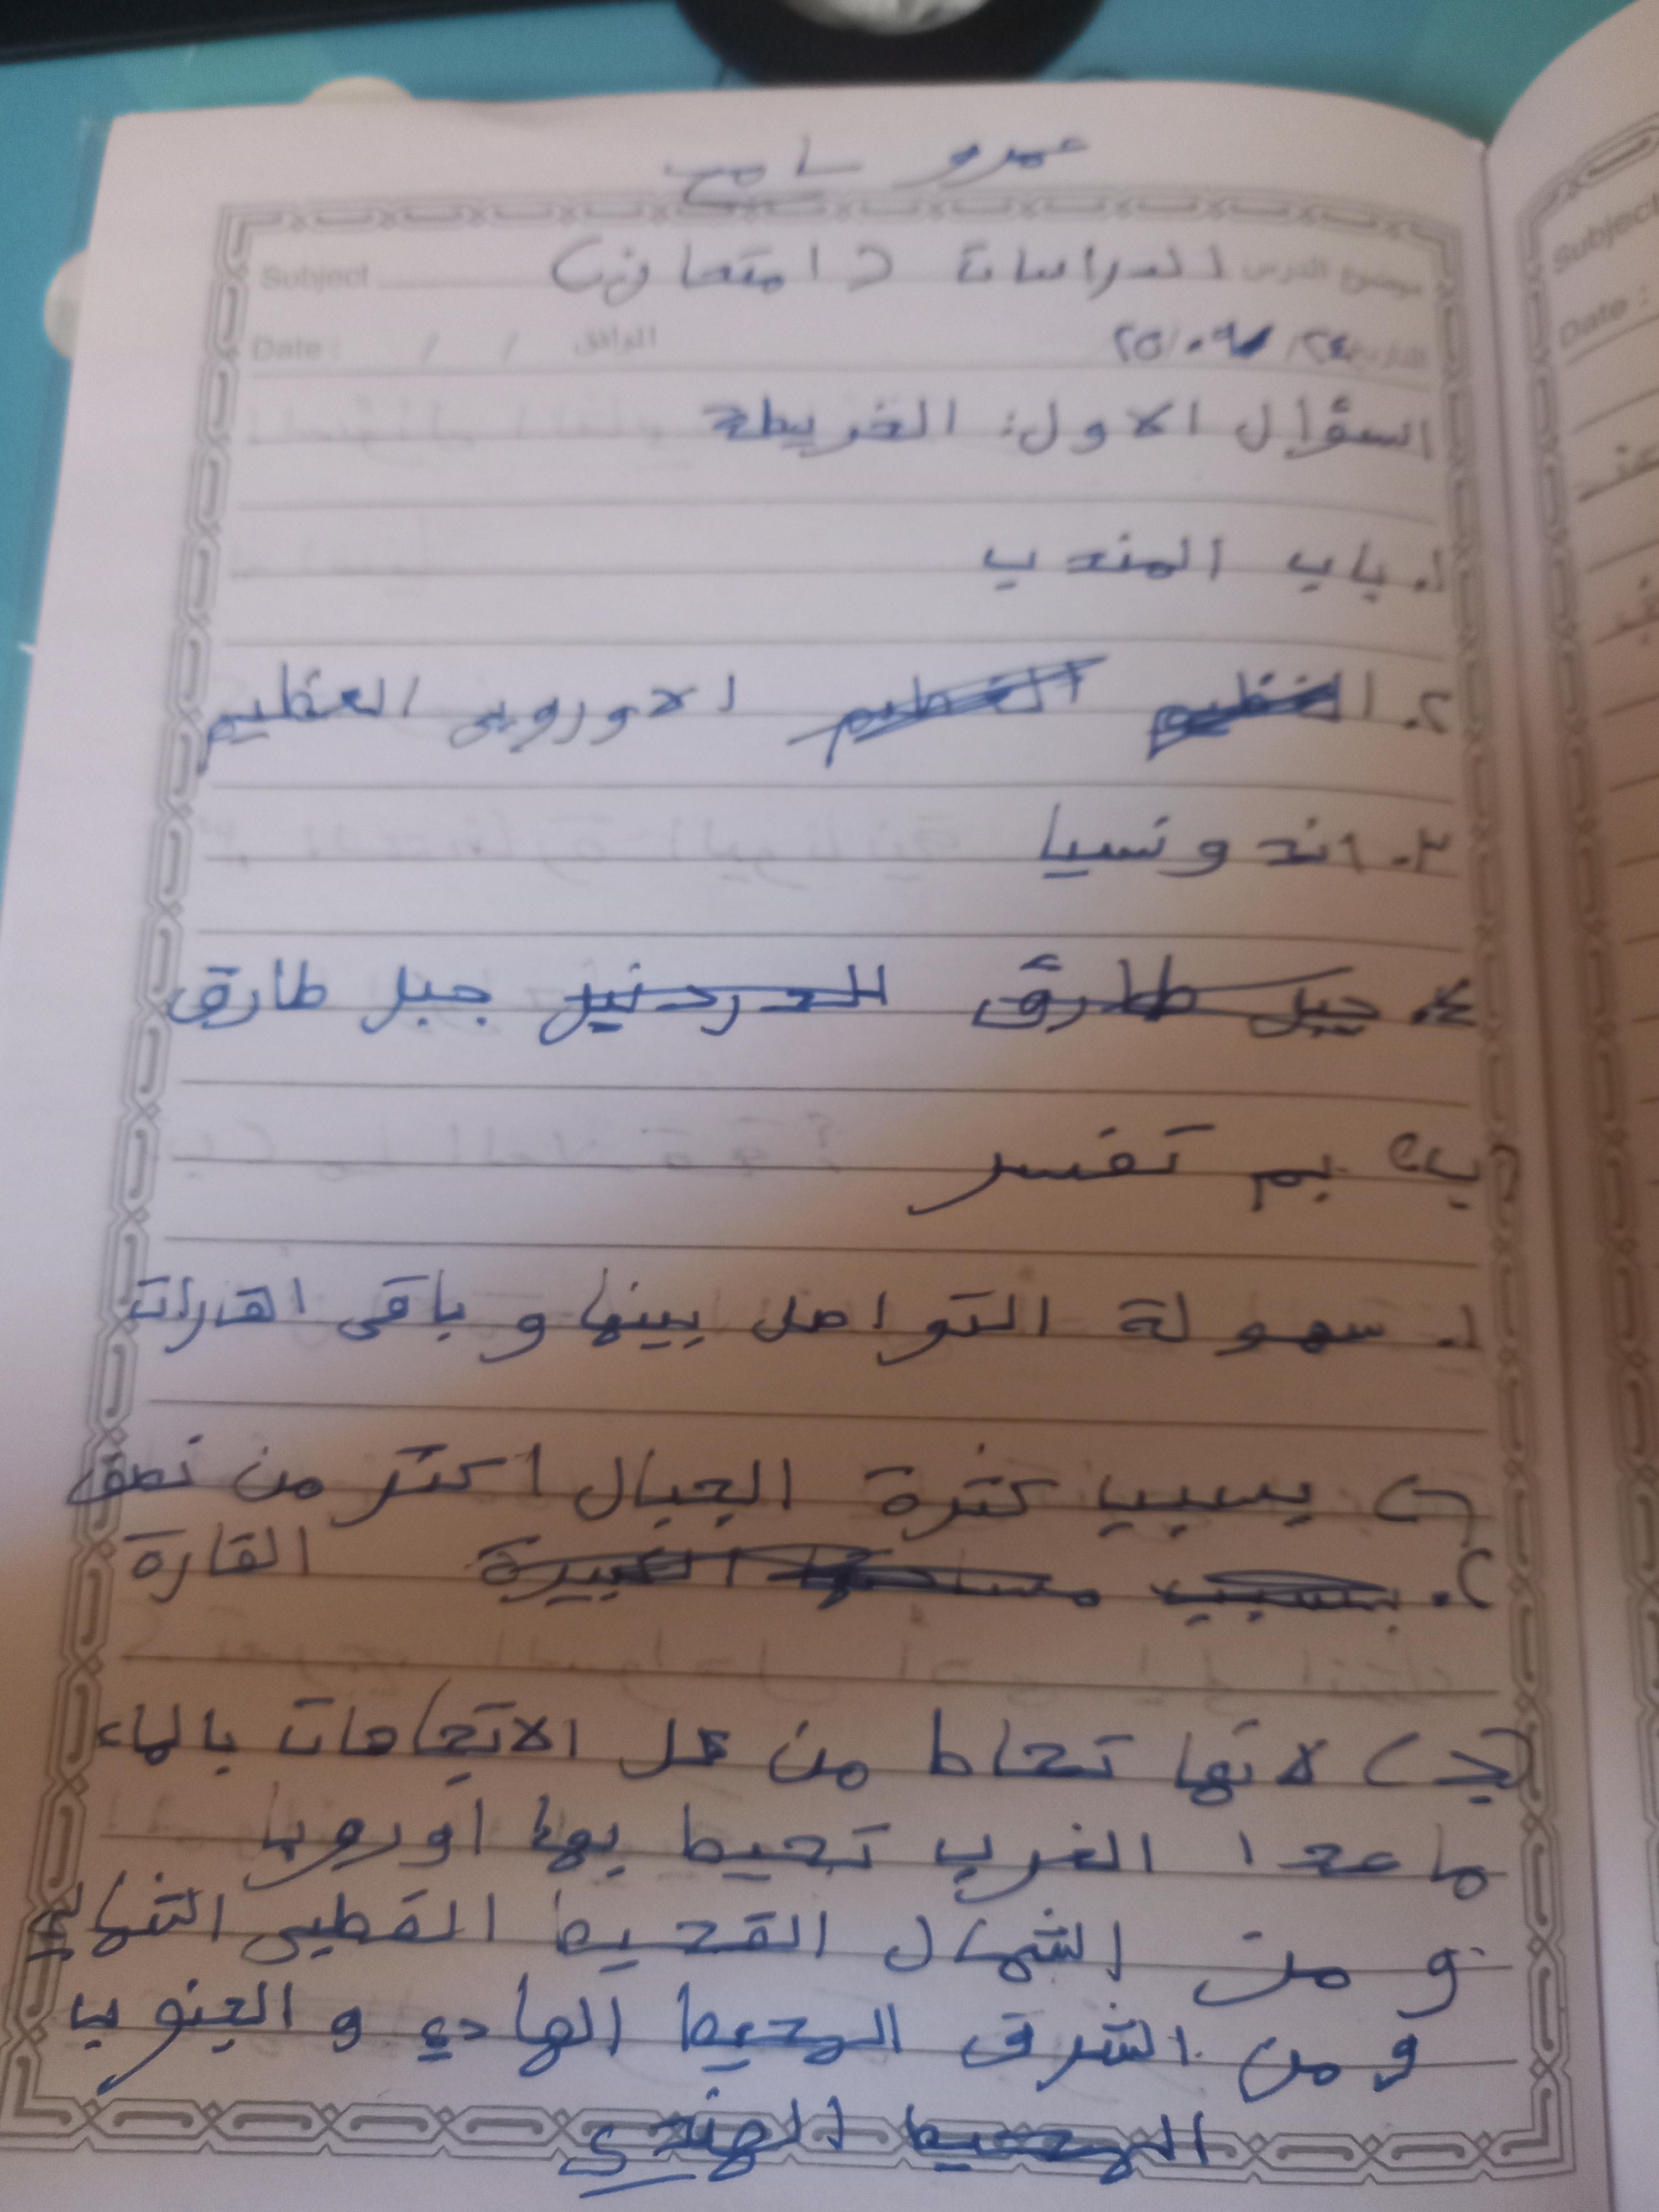 عمرو سامح
موضوع الدرس الدراسات (امتحان) Subject
التاريخ ٢٤/٠٩/٢٥ الموافق / / Date :
السؤال الاول: الخريطة
١. باب المندب
٢. العظيم العظيم الاوروبى العظيم
٣. اندونسيا
٤. جبل طارق الدردنيل جبل طارق
ب) بم تفسر
١. سهولة التواصل بينها و باقى القارات
ب) بسبب كثرة الجبال اكتر من نصف
٢. بسبب مساحتها الكبيرة القارة
جـ) لانها تحاط من كل الاتجاهات بالماء
ما عدا الغرب تحيط بها اوروبا
و من الشمال المحيط القطبى الشمالي
و من الشرق المحيط الهادي و الجنوب
المحيط الهندي
Subject
Date :